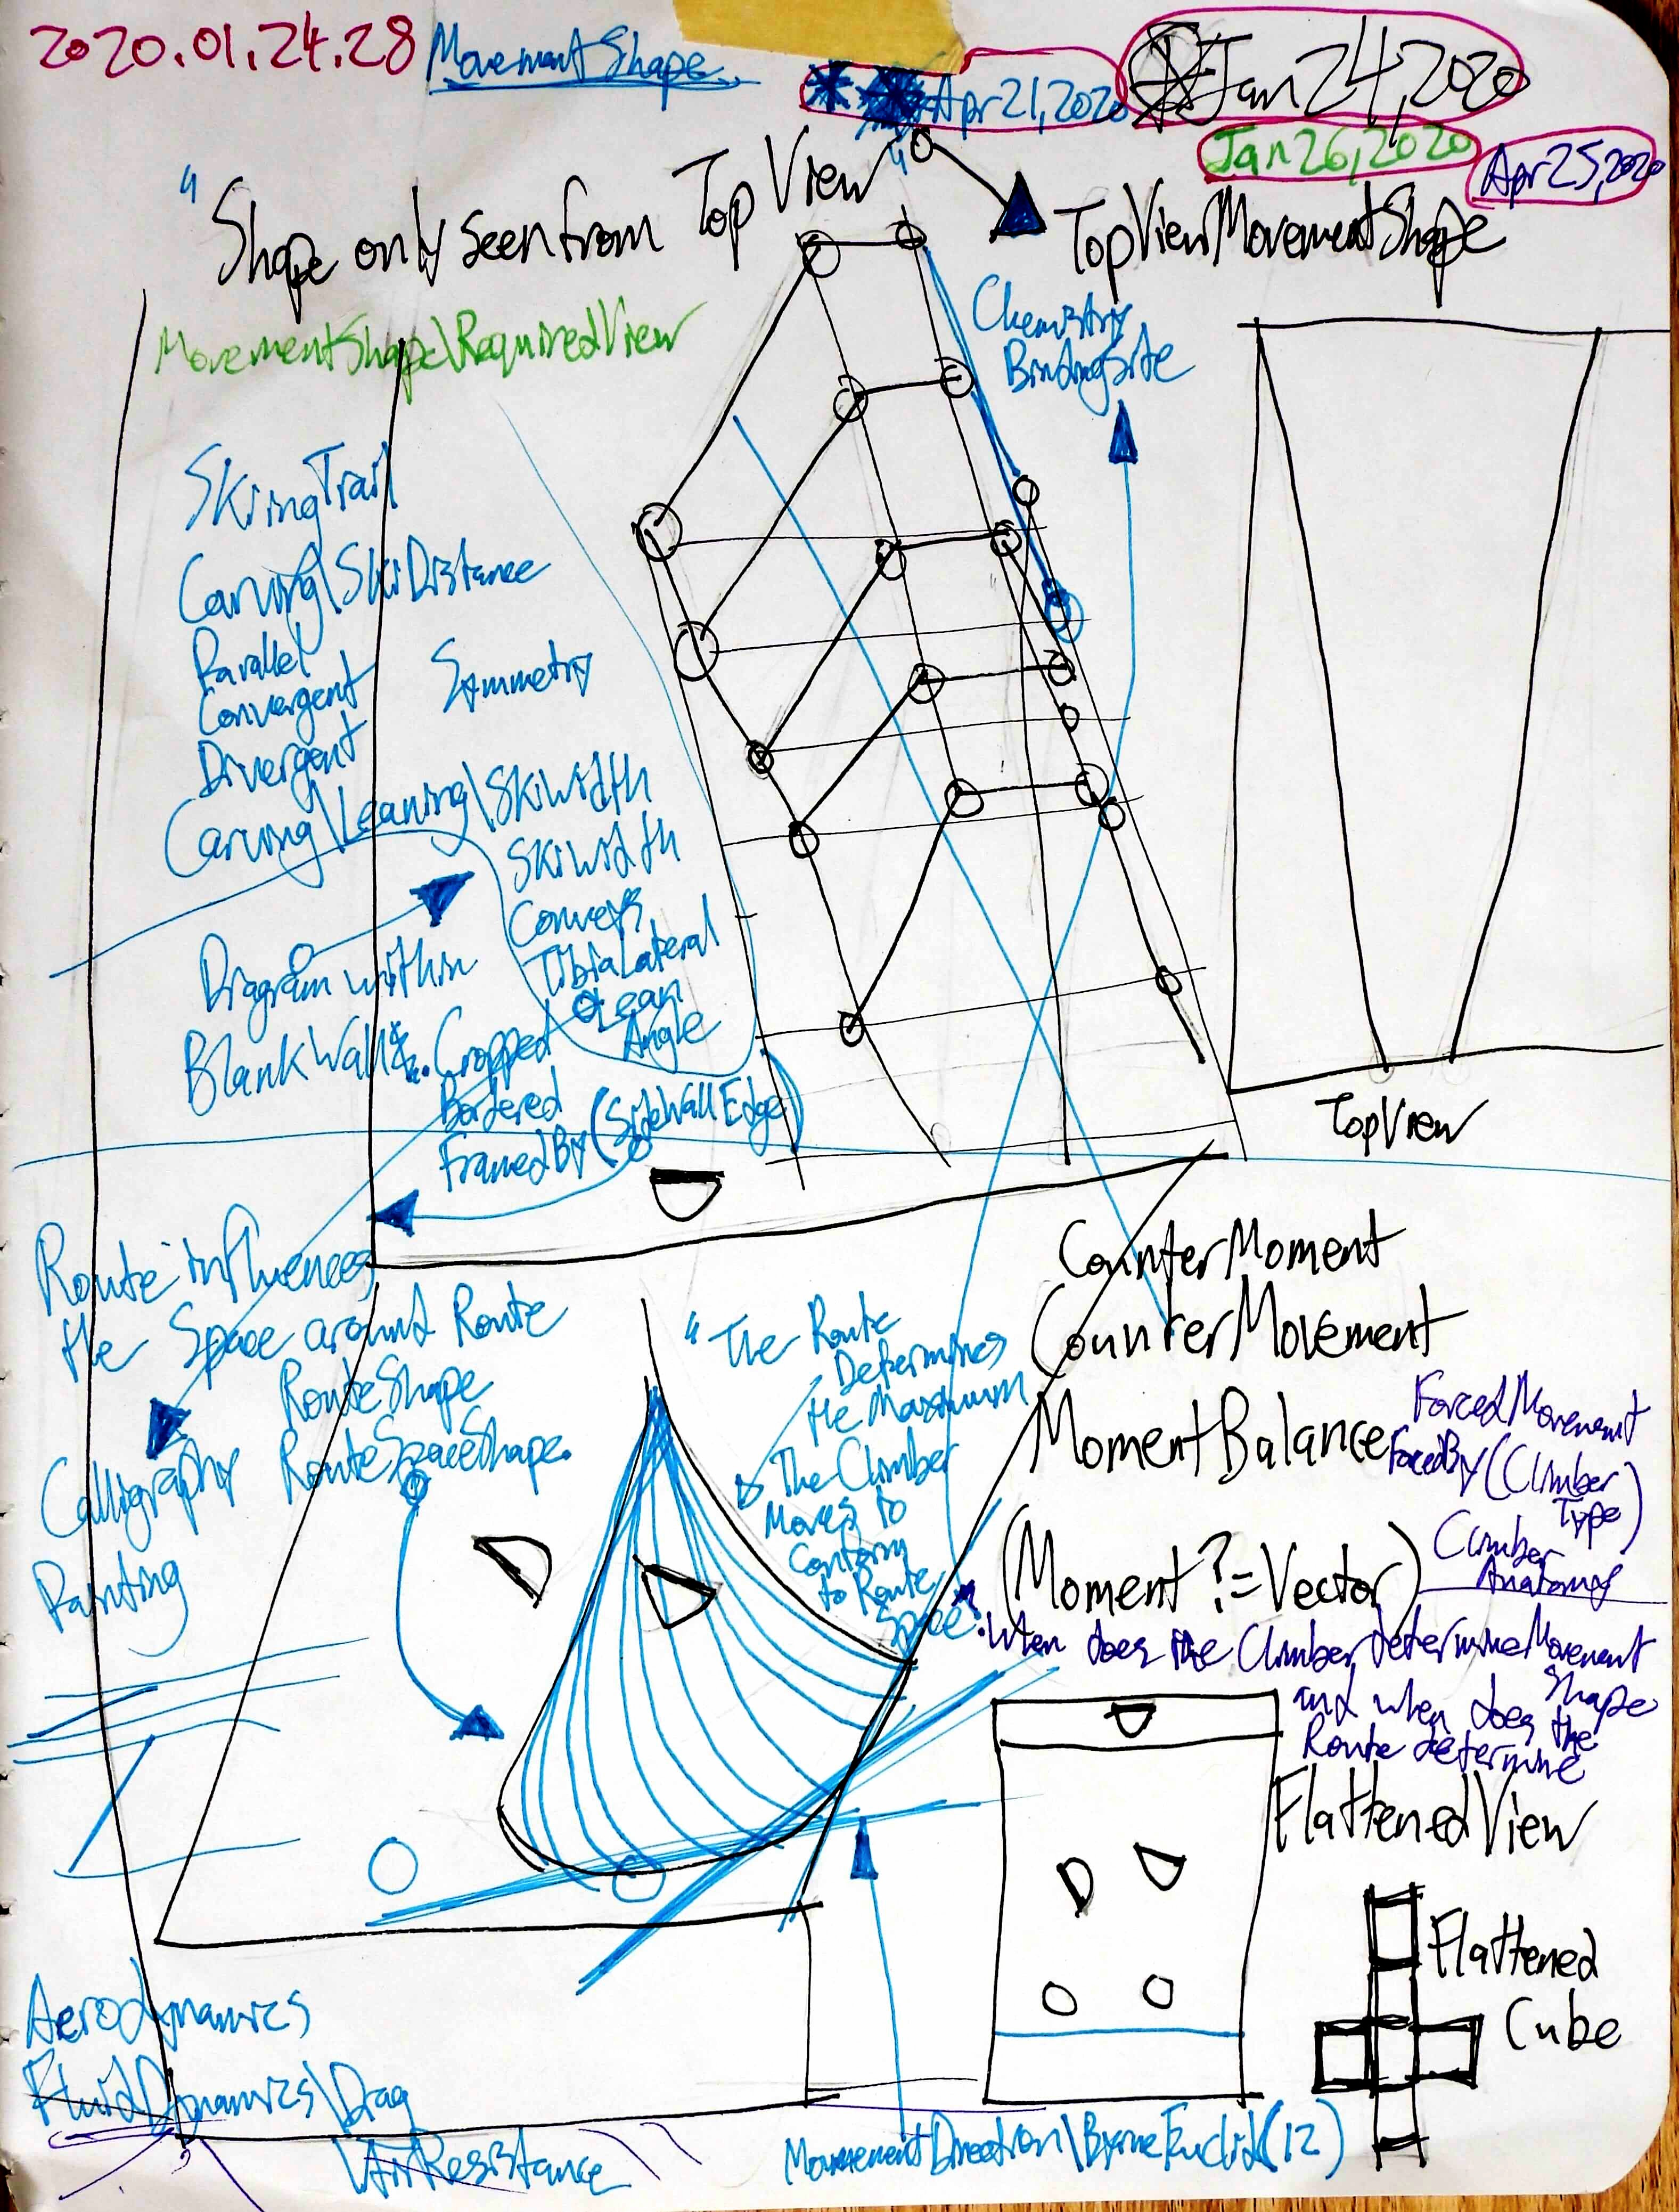 2020.01.24.28
MovementShape
Apr 21, 2020
Jan 24, 2020
Jan 26, 2020
Apr 25, 2020
"Shape only seen from Top View"
TopViewMovementShape
MovementShape\RequiredView
Chemistry
BindingSite
SkiingTrail
Carving\SkiDistance
Parallel
Convergent
Divergent
Symmetry
Carving\Leaning\SkiWidth
SkiWidth
Conveys
TibiaLateral
Lean
Angle
Diagram within
BlankWall
Cropped
Bordered
FramedBy(SideWallEdge)
TopView
Route influences
the Space around Route
RouteShape
RouteSpaceShape.
Calligraphy
Painting
"The Route
Determines
the Maximum
The Climber
Moves to
Conform
to Route
Space"
CounterMoment
CounterMovement
MomentBalance
ForcedMovement
ForcedBy(Climber
Type)
Climber
Anatomy
(Moment ?= Vector)
When does the Climber determine Movement
Shape
and when does the
Route determine
FlattenedView
Flattened
Cube
Aerodynamics
FluidDynamics\Drag
\AirResistance
MovementDirection\ByrneEuclid(12)